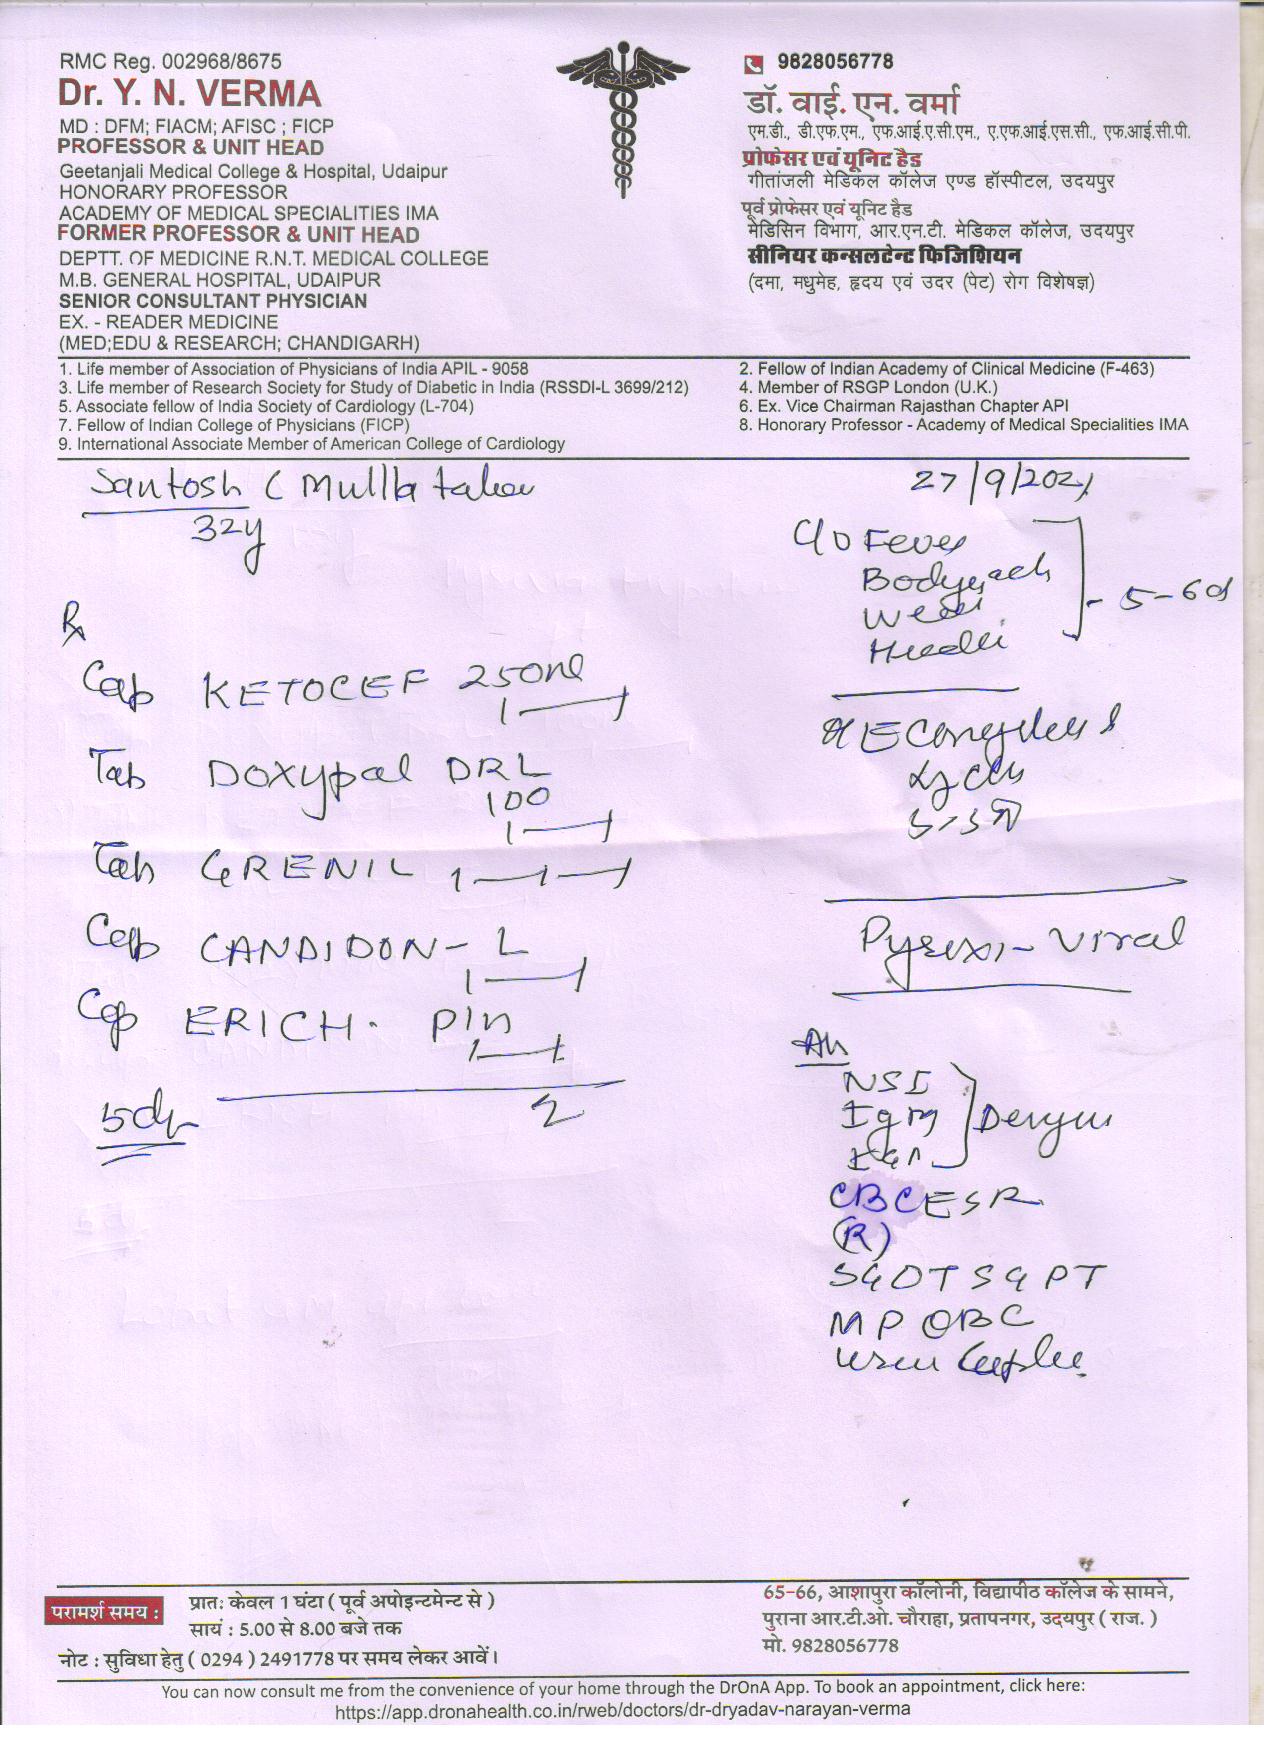 RMC Reg. 002968/8675
Dr. Y. N. VERMA
MD : DFM; FIACM; AFISC ; FICP
PROFESSOR & UNIT HEAD
Geetanjali Medical College & Hospital, Udaipur
HONORARY PROFESSOR
ACADEMY OF MEDICAL SPECIALITIES IMA
FORMER PROFESSOR & UNIT HEAD
DEPTT. OF MEDICINE R.N.T. MEDICAL COLLEGE
M.B. GENERAL HOSPITAL, UDAIPUR
SENIOR CONSULTANT PHYSICIAN
EX. - READER MEDICINE
(MED;EDU & RESEARCH; CHANDIGARH)
9828056778
डॉ. वाई. एन. वर्मा
एम.डी., डी.एफ.एम., एफ.आई.ए.सी.एम., ए.एफ.आई.एस.सी., एफ.आई.सी.पी.
प्रोफेसर एवं यूनिट हैड
गीतांजली मेडिकल कॉलेज एण्ड हॉस्पीटल, उदयपुर
पूर्व प्रोफेसर एवं यूनिट हैड
मेडिसिन विभाग, आर.एन.टी. मेडिकल कॉलेज, उदयपुर
सीनियर कन्सलटेन्ट फिजिशियन
(दमा, मधुमेह, हृदय एवं उदर (पेट) रोग विशेषज्ञ)
1. Life member of Association of Physicians of India APIL - 9058
2. Fellow of Indian Academy of Clinical Medicine (F-463)
3. Life member of Research Society for Study of Diabetic in India (RSSDI-L 3699/212)
4. Member of RSGP London (U.K.)
5. Associate fellow of India Society of Cardiology (L-704)
6. Ex. Vice Chairman Rajasthan Chapter API
7. Fellow of Indian College of Physicians (FICP)
8. Honorary Professor - Academy of Medical Specialities IMA
9. International Associate Member of American College of Cardiology
Santosh
27/9/2021
32y
C/o Fever
Bodyach
5-6d
Rx
Cap KETOCEF 250
1 — 1
Tab Doxypal DRL
100
1 — 1
Tab GRENIL 1 — 1 — 1
Cap CANDIDON - L
1 — 1
Cap ERICH. PIn
1 — 1
Pyrexi - Viral
NSI
IgM
CBC ESR
(R)
SGOT SGPT
MP QBC
प्रातः केवल 1 घंटा ( पूर्व अपोइन्टमेन्ट से )
परामर्श समय :
सायं : 5.00 से 8.00 बजे तक
नोट : सुविधा हेतु ( 0294 ) 2491778 पर समय लेकर आवें।
65-66, आशापुरा कॉलोनी, विद्यापीठ कॉलेज के सामने,
पुराना आर.टी.ओ. चौराहा, प्रतापनगर, उदयपुर ( राज. )
मो. 9828056778
You can now consult me from the convenience of your home through the DrOnA App. To book an appointment, click here:
https://app.dronahealth.co.in/rweb/doctors/dr-dryadav-narayan-verma